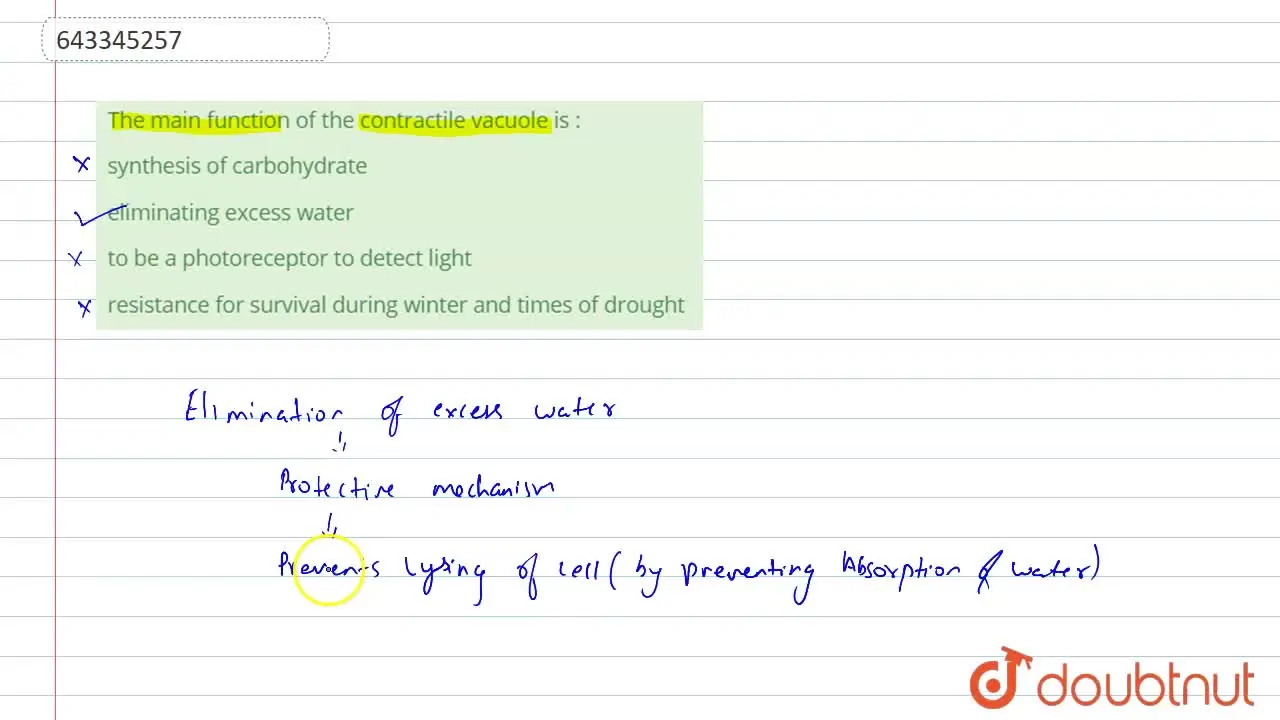 643345257
The main function of the contractile vacuole is :
synthesis of carbohydrate
eliminating excess water
to be a photoreceptor to detect light
resistance for survival during winter and times of drought
Elimination of excess water
Protective mechanism
Prevents lysing of cell ( by preventing Absorption of water)
doubtnut